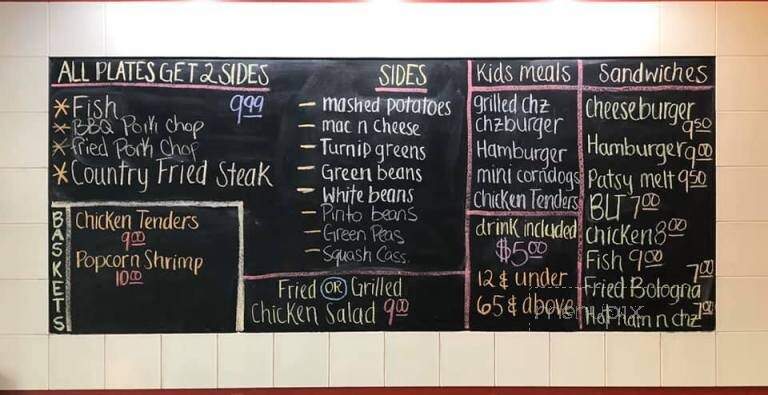 ALL PLATES GET 2 SIDES
* Fish 9.99
* BBQ Pork Chop
* Fried Pork Chop
* Country Fried Steak
BASKETS
Chicken Tenders
9.00
Popcorn Shrimp
10.00
SIDES
- mashed potatoes
- mac n cheese
- Turnip greens
- Green beans
- White beans
- Pinto beans
- Green Peas
- Squash Cass.
Fried OR Grilled
Chicken Salad 9.00
Kids meals
grilled chz
chzburger
Hamburger
mini corndogs
Chicken Tenders
drink included
$5.00
12 & under
65 & above
Sandwiches
Cheeseburger
9.50
Hamburger 9.00
Patsy melt 9.50
BLT 7.00
Chicken 8.00
Fish 9.00
7.00
Fried Bologna
Hot Ham n chz 7.00
menupix